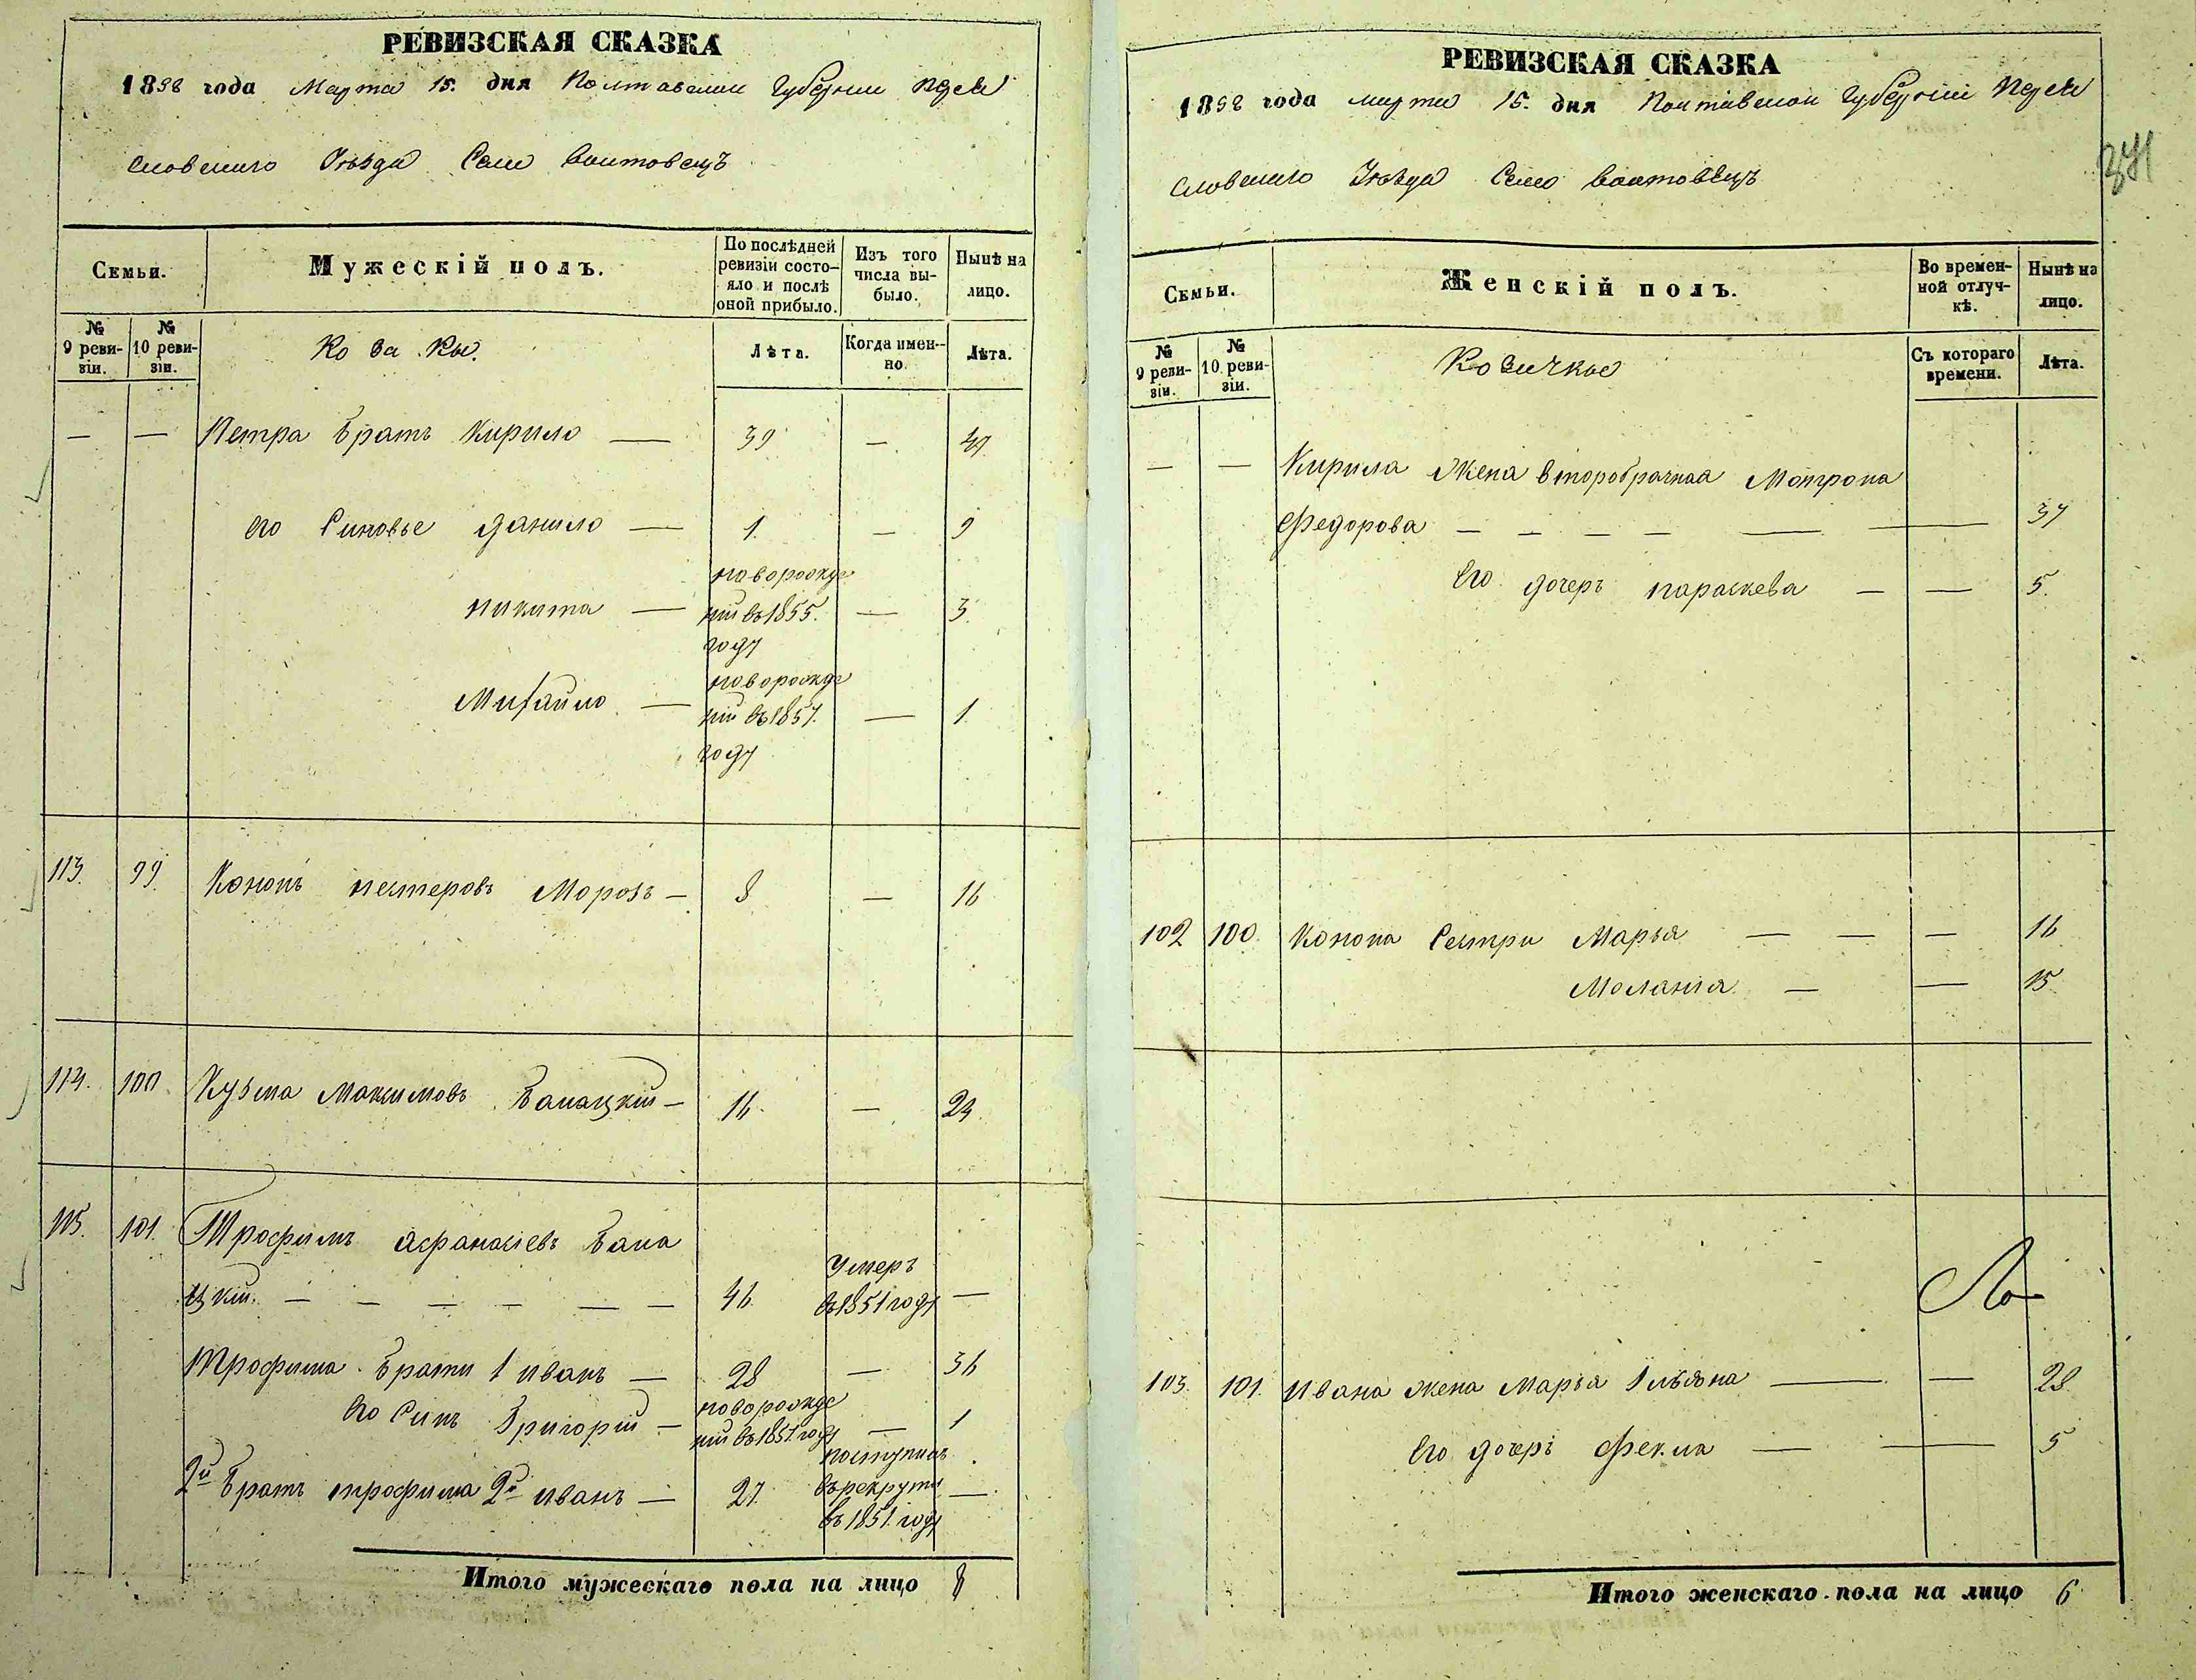 РЕВИЗСКАЯ СКАЗКА
1858 года Марта 15. дня Полтавской Губернии Перея
словского Уѣзда Село Войтовецъ
Семьи.
Мужескій полъ.
По послѣдней ревизіи состо-яло и послѣ оной прибыло.
Изъ того числа вы-было.
Нынѣ на лицо.
№ 9 реви-зіи.
№ 10 реви-зіи.
Козаки.
Лѣта.
Когда имен-но.
Лѣта.
— — Петра Братъ Кирило — 39 — 47
его Синовье Данило — 1. — 9
Никита — новорожде
ній въ 1855. — 3.
году
Михайло — новорожде
ній въ 1857. — 1.
году
113. 99. Кононъ Нестеровъ Морозъ — 8 — 16
114. 100 Кузма Максимовъ Балацкій — 16. — 24.
115. 101. Трофимъ Афанасіевъ Бала
цкій. — — — — — — 46. Умеръ въ 1851 году —
Трофима Брати 1 Иванъ — 28 — 36
Его Синъ Григорій — новорожде
ній въ 1857. году — 1
2й Братъ Трофима 2й Иванъ — 27. поступилъ
въ рекруты —
въ 1851. году
Итого мужескаго пола на лицо 8
РЕВИЗСКАЯ СКАЗКА
1858 года Марта 15. дня Полтавской Губерніи Перея
словского Уѣзда Село Войтовецъ
Семьи.
Женскій полъ.
Во времен-ной отлуч-кѣ.
Нынѣ на лицо.
№ 9 реви-зіи.
№ 10. реви-зіи.
Козачкы
Съ котораго времени.
Лѣта.
— — Кирила Жена второбрачная Мотрона
Федорова — — — — — — 37
Его дочерь Параскева — — 5.
102 100. Конона Сестри Марья — — — 16
Меланія — — 15
103. 101. Ивана жена Марья Ильѣна — — 28.
Его дочерь Фекла — — 5
Итого женскаго пола на лицо 6